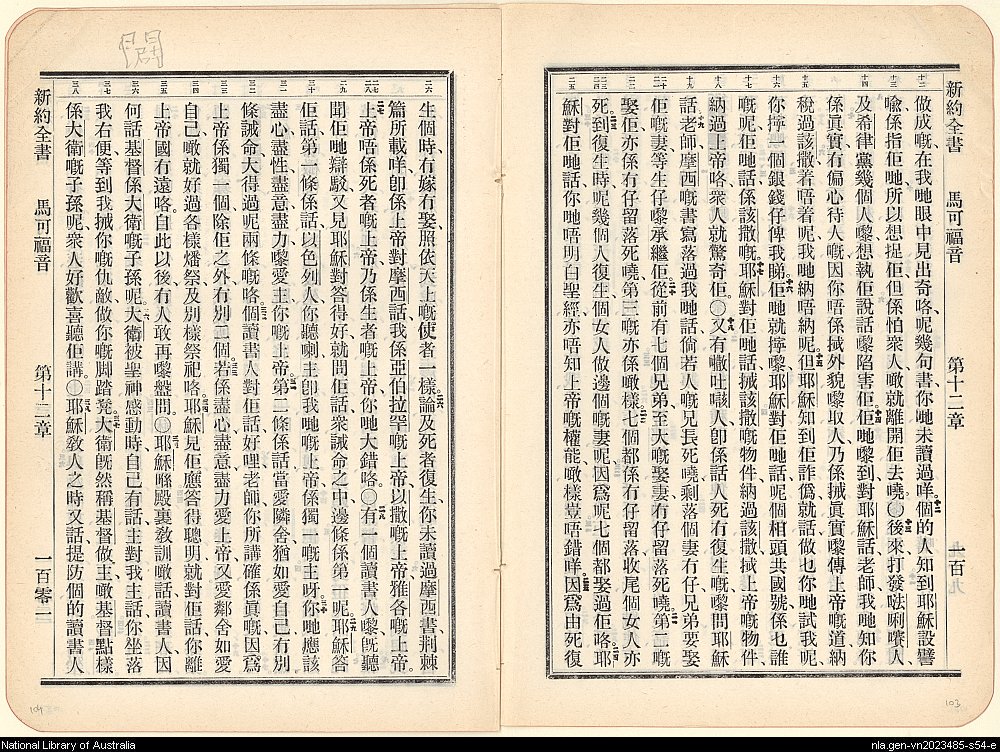 新約全書 馬可福音 第十二章 一百
十一 十二 十三 十四 十五 十六 十七 十八 十九 二十 二一 二二 二三 二四 二五
做成嘅在我哋眼中見出奇咯呢幾句書你哋未讀過咩個的人知到耶穌設譬
喻係指佢哋所以想捉佢但係怕衆人噉就離開佢去曉〇後來打發𠵽唎嚽人
及希律黨幾個人嚟想執佢說話嚟陷害佢佢哋嚟到對耶穌話老師我哋知你
係眞實有偏心待人嘅因你唔係搣外貌嚟取人乃係搣眞實嚟傳上帝嘅道納
稅過該撒着唔着呢我哋納唔納呢但耶穌知到佢詐僞就話做乜你哋試我呢
你擰一個銀錢仔俾我睇佢哋就擰嚟耶穌對佢哋話呢個相頭共國號係乜誰
嘅呢佢哋話係該撒嘅耶穌對佢哋話搣該撒嘅物件納過該撒搣上帝嘅物件
納過上帝咯衆人就驚奇佢〇又有𠾐吐㗇人卽係話人死有復生嘅嚟問耶穌
話老師摩西嘅書寫落過我哋話倘若人嘅兄長死曉剩落個妻冇仔兄弟要娶
佢嘅妻等生仔嚟承繼佢從前有七個兄弟至大嘅娶妻冇仔留落死曉第二嘅
娶佢亦係冇仔留落死曉第三嘅亦係噉樣七個都係冇仔留落收尾個女人亦
死到復生時呢幾個人復生個女人做邊個嘅妻呢因爲呢七個都娶過佢咯耶
穌對佢哋話你哋唔明白聖經亦唔知上帝嘅權能噉樣豈唔錯咩因爲由死復
103
二六 二七 二八 二九 三十 三一 三二 三三 三四 三五 三六 三七 三八
生個時冇嫁冇娶照依天上嘅使者一樣論及死者復生你未讀過摩西書荆棘
篇所載咩卽係上帝對摩西話我係亞伯拉罕嘅上帝以撒嘅上帝雅各嘅上帝
上帝唔係死者嘅上帝乃係生者嘅上帝你哋大錯咯〇有一個讀書人嚟嘅聽
聞佢哋辯駁又見耶穌對答得好就問佢話衆誡命之中邊條係第一呢耶穌答
佢話第一條係話以色列人你聽喇主卽我哋嘅上帝係獨一嘅主呀你哋應該
盡心盡性盡意盡力嚟愛主你嘅上帝第二條係話當愛隣舍猶如愛自己冇別
條誡命大得過呢兩條嘅咯個讀書人對佢話好哩老師你所講確係眞嘅因爲
上帝係獨一個除佢之外冇別二個若係盡心盡意盡力愛上帝又愛鄰舍如愛
自己噉就好過各樣燔祭及別樣祭祀咯耶穌見佢應答得聰明就對佢話你離
上帝國冇遠咯自此以後冇人敢再嚟盤問〇耶穌喺殿裏敎訓噉話讀書人因
何話基督係大衛嘅子孫呢大衛被聖神感動時自己有話主對我主話你坐落
我右便等到我搣你嘅仇敵做你嘅脚踏凳大衛旣然稱基督做主噉基督點樣
係大衛嘅子孫呢衆人好歡喜聽佢講〇耶穌敎人之時又話提防個的讀書人
新約全書 馬可福音 第十二章 一百零二
104
National Library of Australia
nla.gen-vn2023485-s54-e